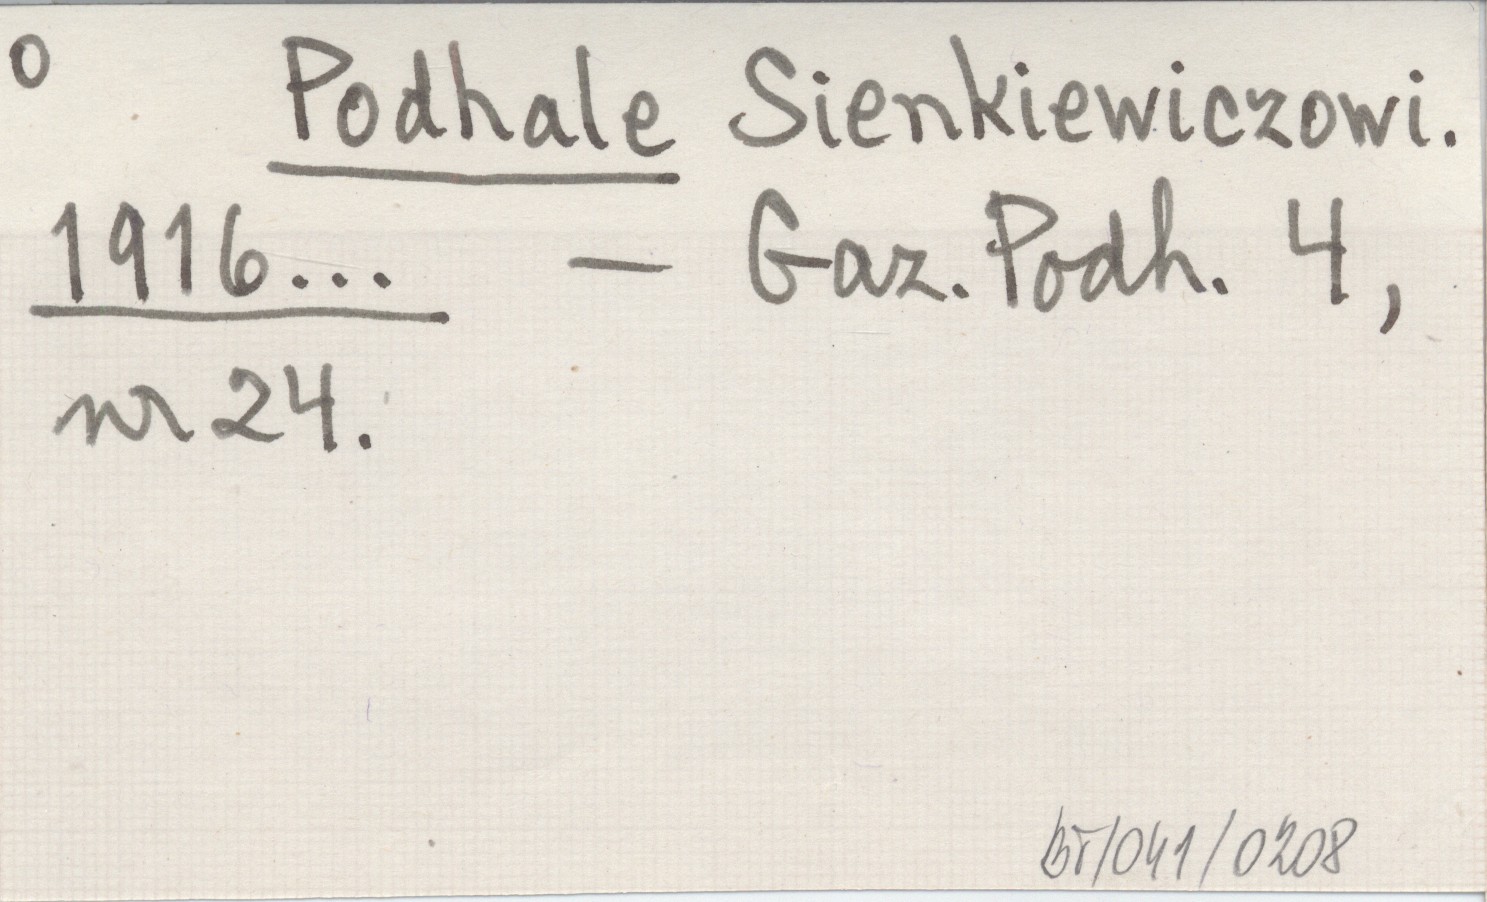 o Podhale Sienkiewiczowi.
1916... — Gaz. Podh. 4,
nr 24.
br/041/0208